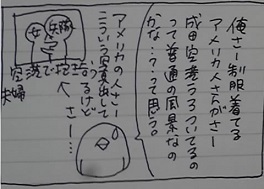 俺さー制服着てる
アメリカ人さんがさー
成田空港うろついてるの
って普通の風景なの
かな…?って思う。
アメリカの人さー
こういう写真出して
うるけど
さー…
女 兵隊
空港で抱き合う
夫婦